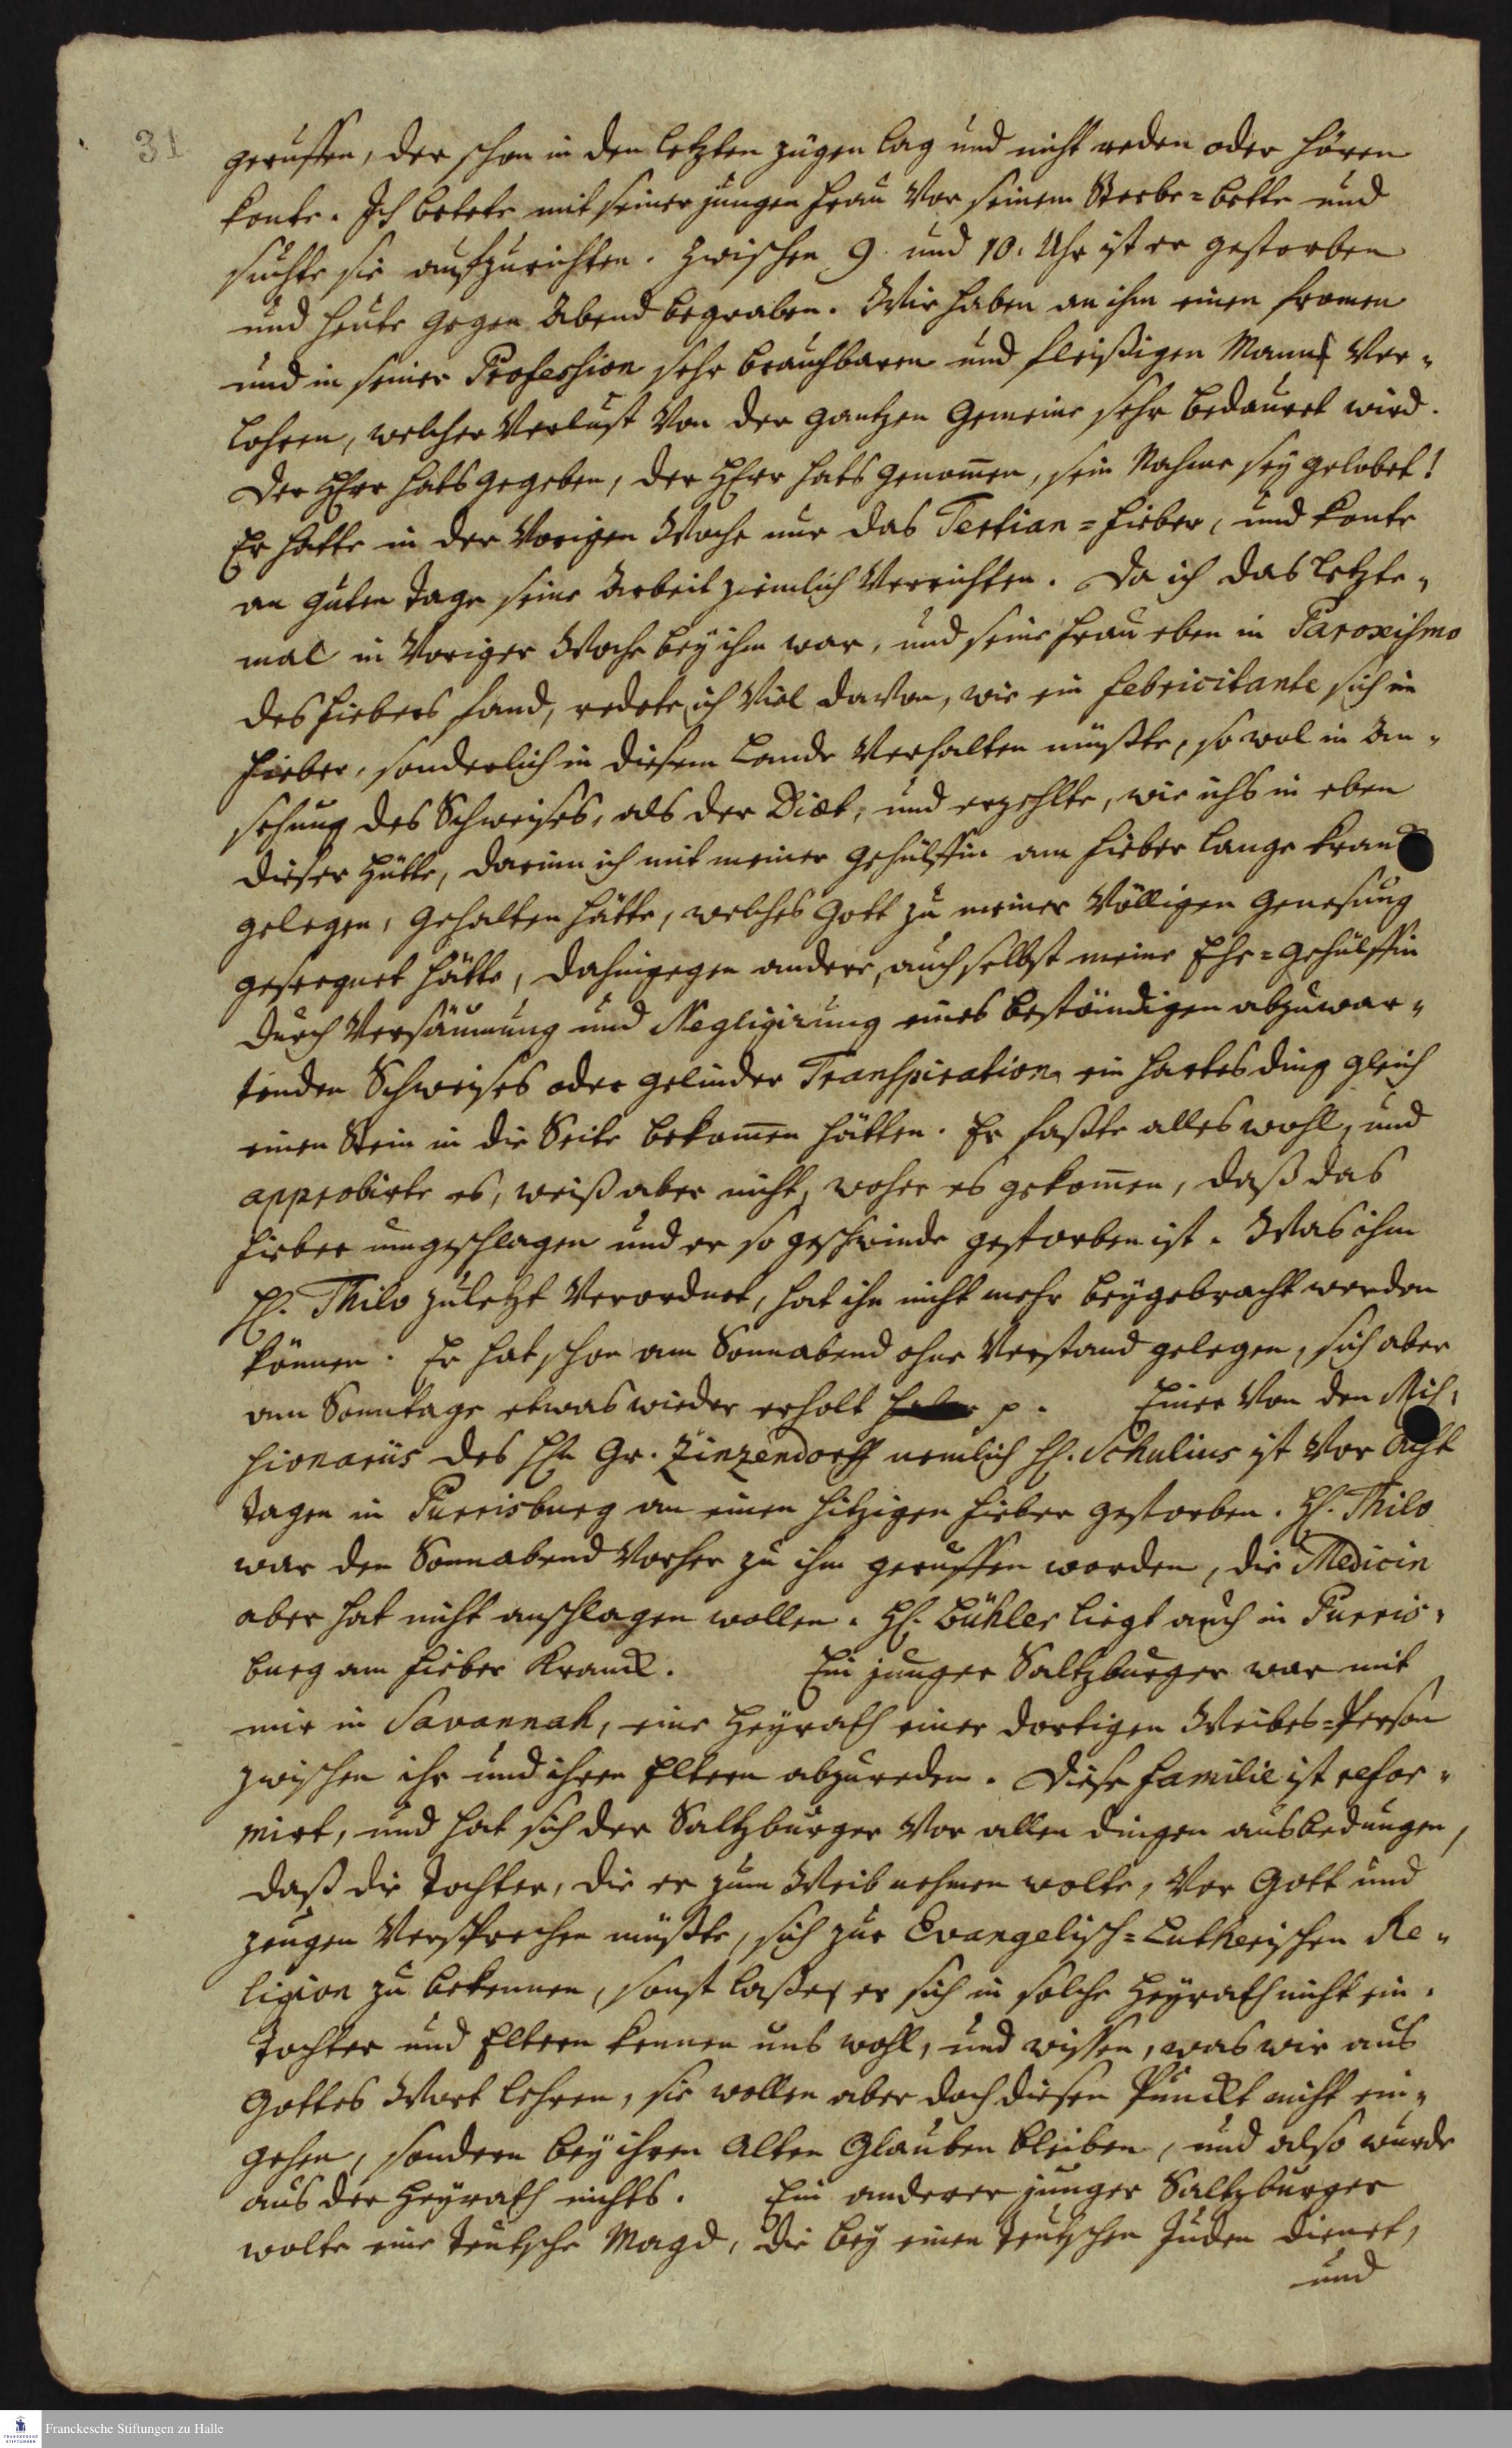 31
geruffen, der schon in den letzten zügen lag und nicht reden oder hören
konte. Ich betete mit seiner jungen Frau vor seinem Sterbe=bette und
suchte sie aufzurichten. Zwischen 9. und 10. Uhr ist er gestorben
und heute gegen Abend begraben. Wir haben an ihm einen fromen
und in seiner Profession sehr brauchbaren und fleißigen Mann ver„
lohren, welcher Verlust von der gantzen Gemeine sehr bedauret wird.
Der HErr hats gegeben, der HErr hats genom̅en, sein Nahme sey gelobet!
Er hatte in der vorigen Woche nur das Tertian=Fieber, und konte
an guten Tage seine Arbeit ziemlich verrichten. Da ich das letzte„
mal in voriger Woche bey ihm war, und seine Frau eben in Paroxismo
des Fiebers fand, redete ich viel davon, wie ein Febricitante sich im
Fieber, sonderlich in diesem Lande verhalten müßte, so wol in An„
sehung des Schweises, als der Diæt, und erzehlte, wie ichs in eben
dieser Hütte, darinn ich mit meiner Gehülffin am Fieber lange kranck
gelegen, gehalten hätte, welches Gott zu meiner völligen Genesung
gesegnet hätte, dahingegen andere, auch selbst meine Ehe=Gehülffin
durch Versäumung und Negligirung eines beständigen abzuwar„
tenden Schweises oder gelinder Transpiration ein hartes ding gleich
einen Stein in die Seite bekom̅en hätten. Er faßte alles wohl, und
approbirte es, weiß aber nicht, woher es gekom̅en, daß das
Fieber umgeschlagen und er so geschwinde gestorben ist. Was ihm
H. Thilo zuletzt verordnet, hat ihm nicht mehr beygebracht werden
können. Er hat schon am Sonnabend ohne Verstand gelegen, sich aber
am Sonntage etwas wieder erholt p. Einer von den Mis„
sionariis des Hn Gr. Zinzendorff nemlich H. Schulius ist vor Acht
tagen in Purrisburg an einen hitzigen Fieber gestorben. H. Thilo
war den Sonnabend vorher zu ihm geruffen worden, die Medicin
aber hat nicht anschlagen wollen. H. Bühler liegt auch in Purris„
burg am Fieber kranck. Ein junger Saltzburger war mit
mir in Savannah, eine Heyrath einer dortigen Weibes=Person
zwischen ihr und ihren Eltern abzureden. Diese Familie ist refor„
mirt, und hat sich der Saltzburger vor allen dingen ausbedungen,
daß die Tochter, die er zum Weib nehmen wolte, vor Gott und
zeugen versprechen müßte, sich zur Evangelisch=Lutherischen Re„
ligion zu bekennen, sonst laße er sich in solche Heyrath nicht ein.
Tochter und Eltern kennen uns wohl, und wissen, was wir aus
Gottes Wort lehren, sie wollen aber doch diesen Punckt nicht ein„
gehen, sondern bey ihren Alten Glauben bleiben, und also wurde
aus der Heyrath nichts. Ein anderer junger Saltzburger
wolte eine teutsche Magd, die bey einen teutschen Juden dienet,
und
Franckesche Stiftungen zu Halle